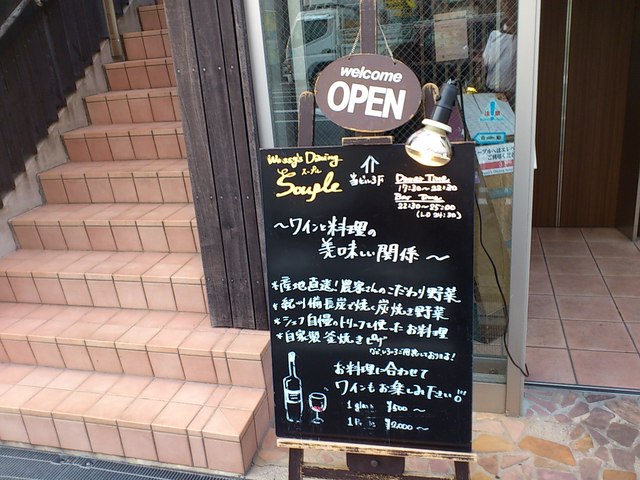 welcome
OPEN
Wassy's Dining
スープル
Souple
当ビル3F
Dinner Time
17:30～22:30
Bar Time
22:30～25:00
(L.O 24:30)
～ワインと料理の
美味しい関係～
*産地直送！農家さんのこだわり野菜
*紀州備長炭で焼く炭焼き野菜
*シェフ自慢のトリュフを使ったお料理
*自家製釜焼きピザ
などなどご用意しております！
お料理に合わせて
ワインもお楽しみ下さい!!!
1 glass ¥500～
¥2,000～